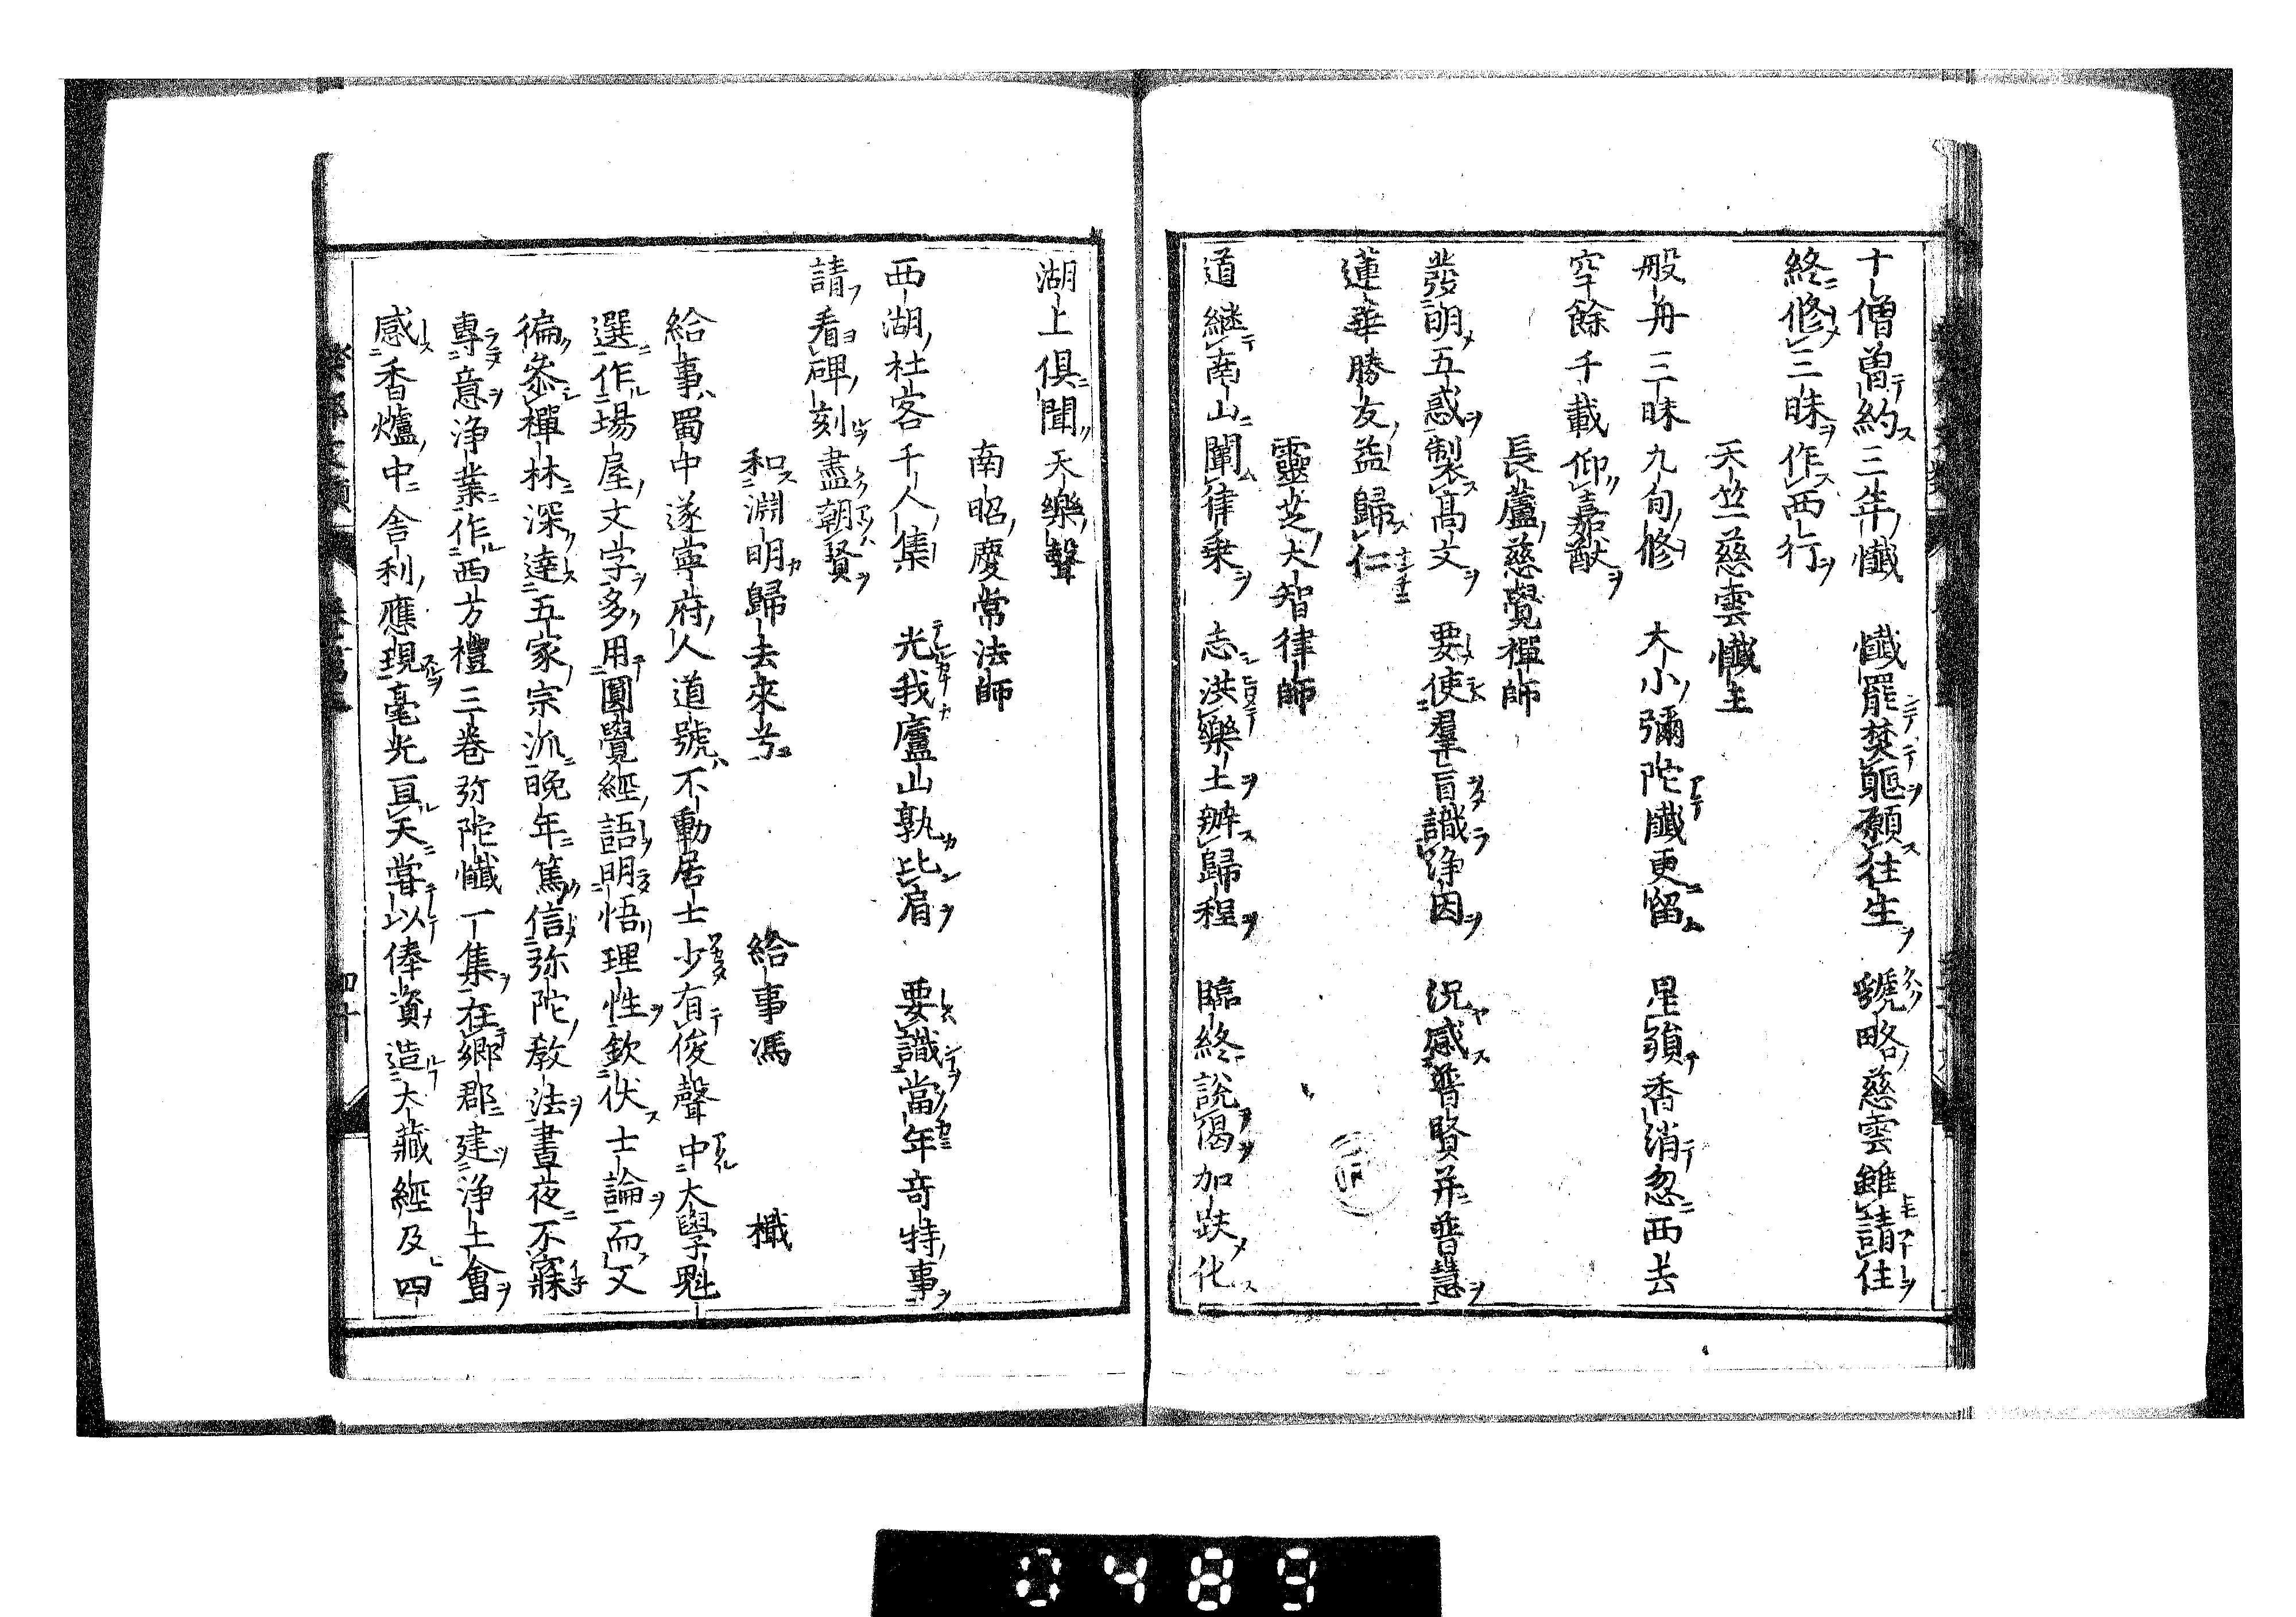 十僧曽約三年懺　懺罷焚軀願往生　號略慈雲雖請住
終修三昧作西行
天竺慈雲懺主
般舟三昧九旬修　大小彌陀懺更留　星殞香消忽西去
空餘千載仰嘉猷
長蘆慈覺禪師
發明五惑製髙文　要使羣盲識淨因　況感普賢并普慧
蓮華勝友益歸仁
靈芝大智律師
道継南山闡律乗　志洪樂土辦歸程　臨終說偈加趺化
湖上俱聞天樂聲
南昭慶常法師
西湖社客千人集　光我廬山孰比肩　要識當年奇特事
請看碑刻盡朝賢
和淵明歸去來兮　給事馮　檝
給事蜀中遂寧府人道號不動居士少有俊聲中大學魁
選作場屋文字多用圓覺經語明悟理性欽伏士論而又
徧叅禪林深達五家宗派晩年篤信弥陀教法晝夜不寐
專意淨業作西方禮三卷弥陀懺一集在郷郡建淨土會
感香爐中舍利應現毫光亘天嘗以俸資造大藏經及四
0489